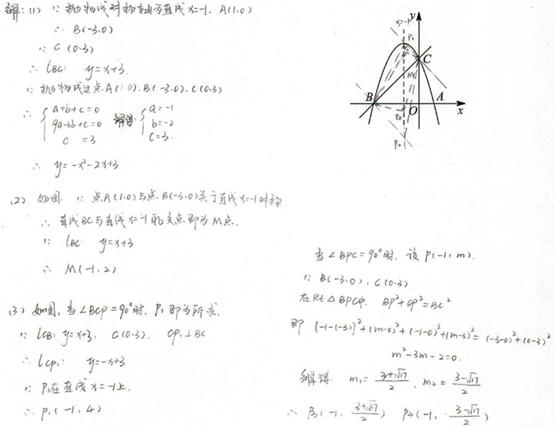 解:(1) ∵ 抛物线对称轴为直线x=-1, A(1.0)
∴ B(-3.0)
∵ C (0.3)
∴ lBC: y=x+3.
∵ 抛物线过点A(1.0). B(-3.0). C(0.3)
∴ { a+b+c=0 9a-3b+c=0 c=3 解得 { a=-1 b=-2 c=3.
∴ y=-x²-2x+3
(2) 如图. ∵ 点A(1.0)与点B(-3.0)关于直线x=-1对称
∴ 直线BC与直线x=-1的交点即为M点.
∵ lBC y=x+3
∴ M(-1.2)
(3) 如图, 当∠BCP=90°时. P₁即为所求.
∵ lCB: y=x+3. C(0.3). CP₁⊥BC
∴ lCP₁: y=-x+3
∵ P₁在直线x=-1上.
∴ P₁(-1,4)
x=-1
y
P₁
C
M
B
O
A
x
P₂
当∠BPC=90°时. 设P(-1, m).
∵ B(-3.0). C(0.3)
在Rt△BPC中. BP²+CP²=BC²
即 [-1-(-3)]²+(m-0)²+(-1-0)²+(m-3)²=(-3-0)²+(0-3)²
m²-3m-2=0.
解得 m₁=(3+√17)/2, m₂=(3-√17)/2
∴ P₃(-1, (3+√17)/2) P₄(-1, (3-√17)/2)